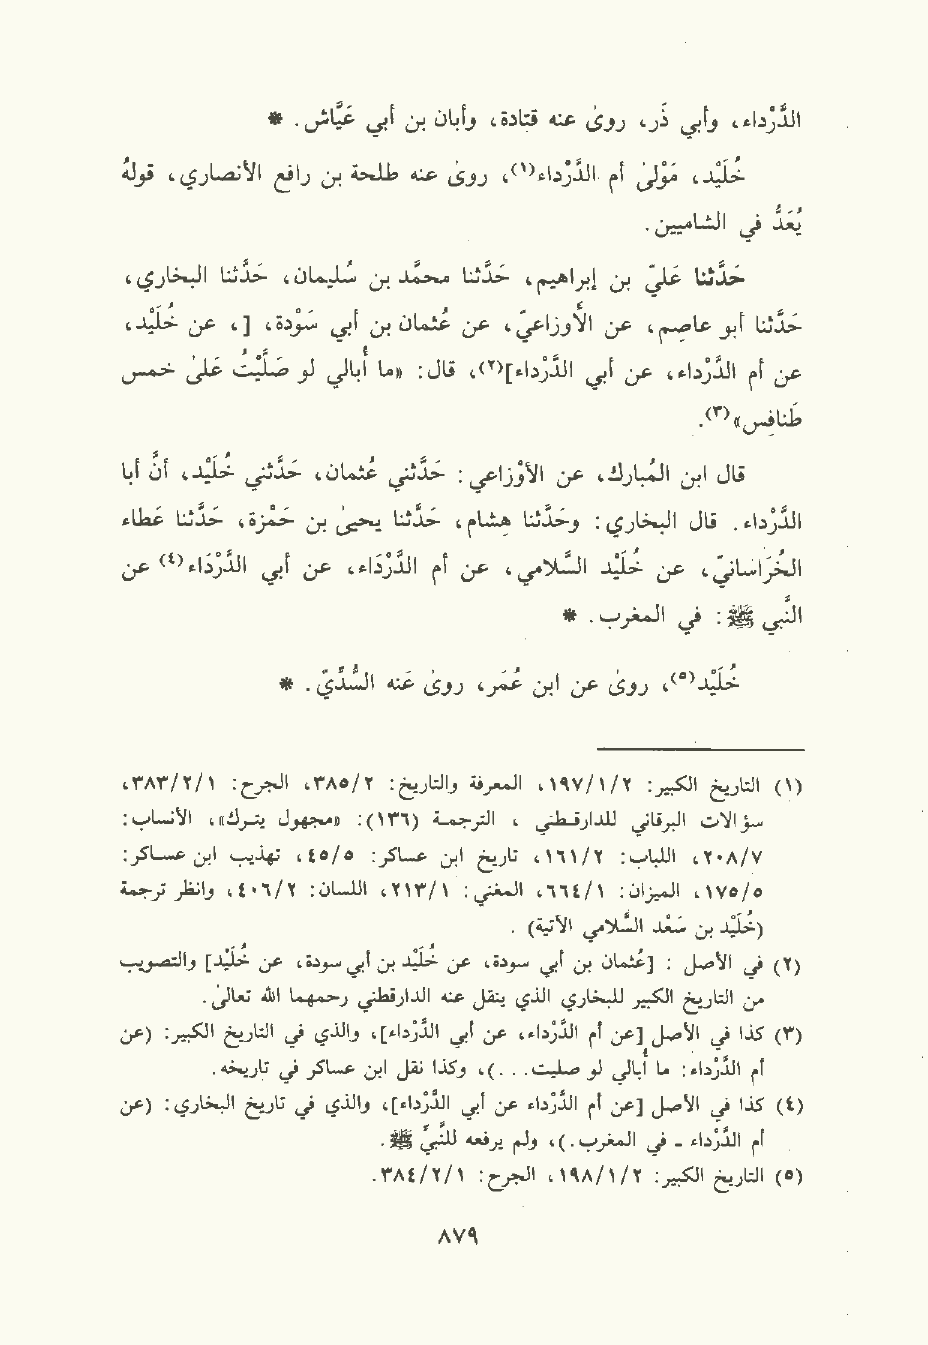 الدَّرْداء، وأبي ذَر، روىٰ عنه قتادة، وأبان بن أبي عَيَّاش. *
خُلَيْد، مَوْلىٰ أم الدَّرْداء(١)، روىٰ عنه طلحة بن رافع الأنصاري، قولهُ
يُعَدُّ في الشاميين.
حَدَّثنا عَليّ بن إبراهيم، حَدَّثنا محمَّد بن سُليمان، حَدَّثنا البخاري،
حَدَّثنا أبو عاصِم، عن الأوْزاعيّ، عن عُثمان بن أبي سَوْدة، [، عن خُلَيْد،
عن أم الدَّرْداء، عن أبي الدَّرْداء](٢)، قال: «ما أُبالي لو صَلَّيْتُ عَلىٰ خمس
طَنافِس»(٣).
قال ابن المُبارك، عن الأوْزاعي: حَدَّثني عُثمان، حَدَّثني خُلَيْد، أنَّ أبا
الدَّرْداء. قال البخاري: وحَدَّثنا هِشام، حَدَّثنا يحيىٰ بن حَمْزة، حَدَّثنا عَطاء
الخُرَاسانيّ، عن خُلَيْد السَّلامي، عن أم الدَّرْدَاء، عن أبي الدَّرْدَاء(٤) عن
النَّبي ﷺ: في المغرب. *
خُلَيْد(٥)، روىٰ عن ابن عُمَر، روىٰ عَنه السُّدِّيّ. *
(١) التاريخ الكبير: ٢/١/١٩٧، المعرفة والتاريخ: ٢/٣٨٥، الجرح: ١/٢/٣٨٣،
سؤالات البرقاني للدارقطني، الترجمة (١٣٦): «مجهول يترك»، الأنساب:
٧/٢٠٨، اللباب: ٢/١٦١، تاريخ ابن عساكر: ٥/٤٥، تهذيب ابن عساكر:
٥/١٧٥، الميزان: ١/٦٦٤، المغني: ١/٢١٣، اللسان: ٢/٤٠٦، وانظر ترجمة
(خُلَيْد بن سَعْد السَّلامي الآتية) .
(٢) في الأصل : [عُثمان بن أبي سودة، عن خُلَيْد بن أبي سودة، عن خُلَيْد] والتصويب
من التاريخ الكبير للبخاري الذي ينقل عنه الدارقطني رحمهما الله تعالىٰ.
(٣) كذا في الأصل [عن أم الدَّرْداء، عن أبي الدَّرْداء]، والذي في التاريخ الكبير: (عن
أم الدَّرْداء: ما أُبالي لو صليت. . .)، وكذا نقل ابن عساكر في تاريخه.
(٤) كذا في الأصل [عن أم الدَّرْداء عن أبي الدَّرْداء]، والذي في تاريخ البخاري: (عن
أم الدَّرْداء - في المغرب.)، ولم يرفعه للنَّبيِّ ﷺ.
(٥) التاريخ الكبير: ٢/١/١٩٨، الجرح: ١/٢/٣٨٤.
٨٧٩